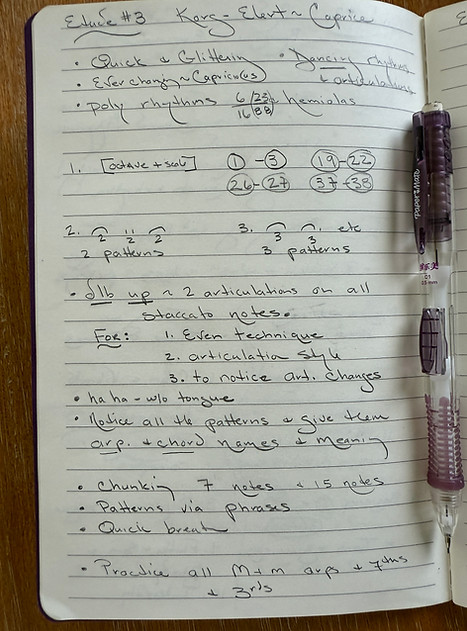 Etude #3 Karg-Elert ~ Caprice
• Quick & Glittering • Dancing rhythms
• Ever changing ~ Capricious & articulations
• poly rhythms 6/16 2/8 3/8 hemiolas
1. [octave + scale] 1 - 3 19 - 22
26 - 27 37 - 38
2. 2 2 3. 3 3 etc
2 patterns 3 patterns
• up ~ 2 articulations on all
staccato notes.
For: 1. Even technique
2. articulation style
3. to notice art. changes
• ha ha - w/o tongue
• Notice all the patterns & give them
arp. & chord names & meaning
• Chunking 7 notes & 15 notes
• Patterns via phrases
• Quick breath
• Practice all M+m arps & 7ths
& 3rds
PAPER MATE
0.5 mm